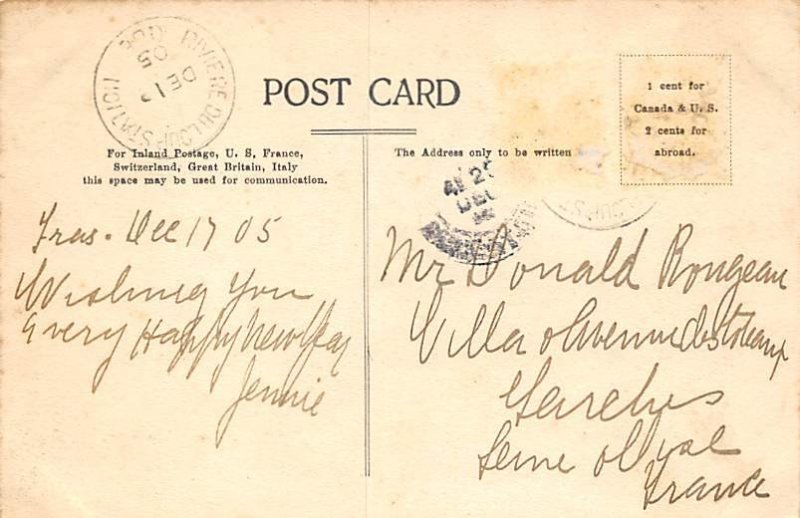 RIVIERE DU LOUP STATION
QUE
DE 1
05
POST CARD
1 cent for
Canada & U. S.
2 cents for
abroad.
For Inland Postage, U. S, France,
Switzerland, Great Britain, Italy
this space may be used for communication.
The Address only to be written
Dec 17 05
Wishing You
Every Happy New Year
Jennie
Mr Donald Rougeau
Villa
Garches
Seine et Oise
France